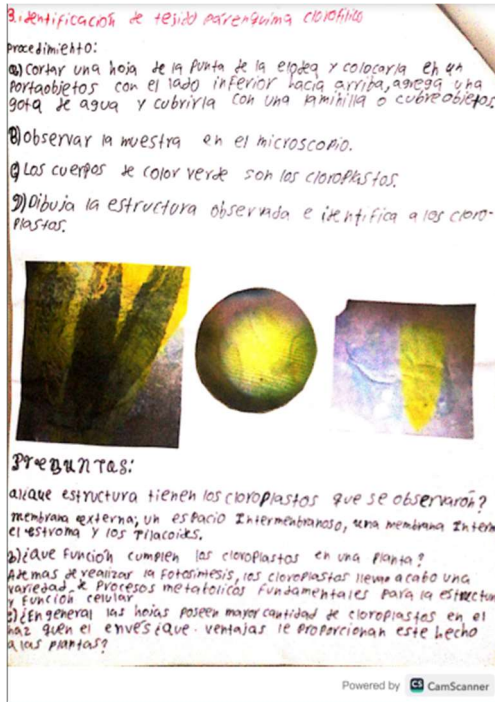 3. identificación de tejido parenquima clorofilico
procedimiento:
a) Cortar una hoja de la punta de la elodea y colocarla en un
portaobjetos con el lado inferior hacia arriba, agrega una
gota de agua y cubrirla con una laminilla o cubreobjetos.
B) Observar la muestra en el microscopio.
c) Los cuerpos de color verde son los cloroplastos.
D) Dibuja la estructura observada e identifica a los cloro-
plastos.
Preguntas:
a) ¿que estructura tienen los cloroplastos que se observaron?
membrana externa; un espacio intermembranoso, una membrana interna
el estroma y los tilacoides.
b) ¿que función cumplen los cloroplastos en una planta?
Ademas de realizar la Fotosintesis, los cloroplastos llevan acabo una
variedad de procesos metabolicos fundamentales para la estructura
y función celular
c) ¿En general las hojas poseen mayor cantidad de cloroplastos en el
haz quen el envés ¿que ventajas le proporcionan este hecho
a las plantas?
Powered by CS CamScanner